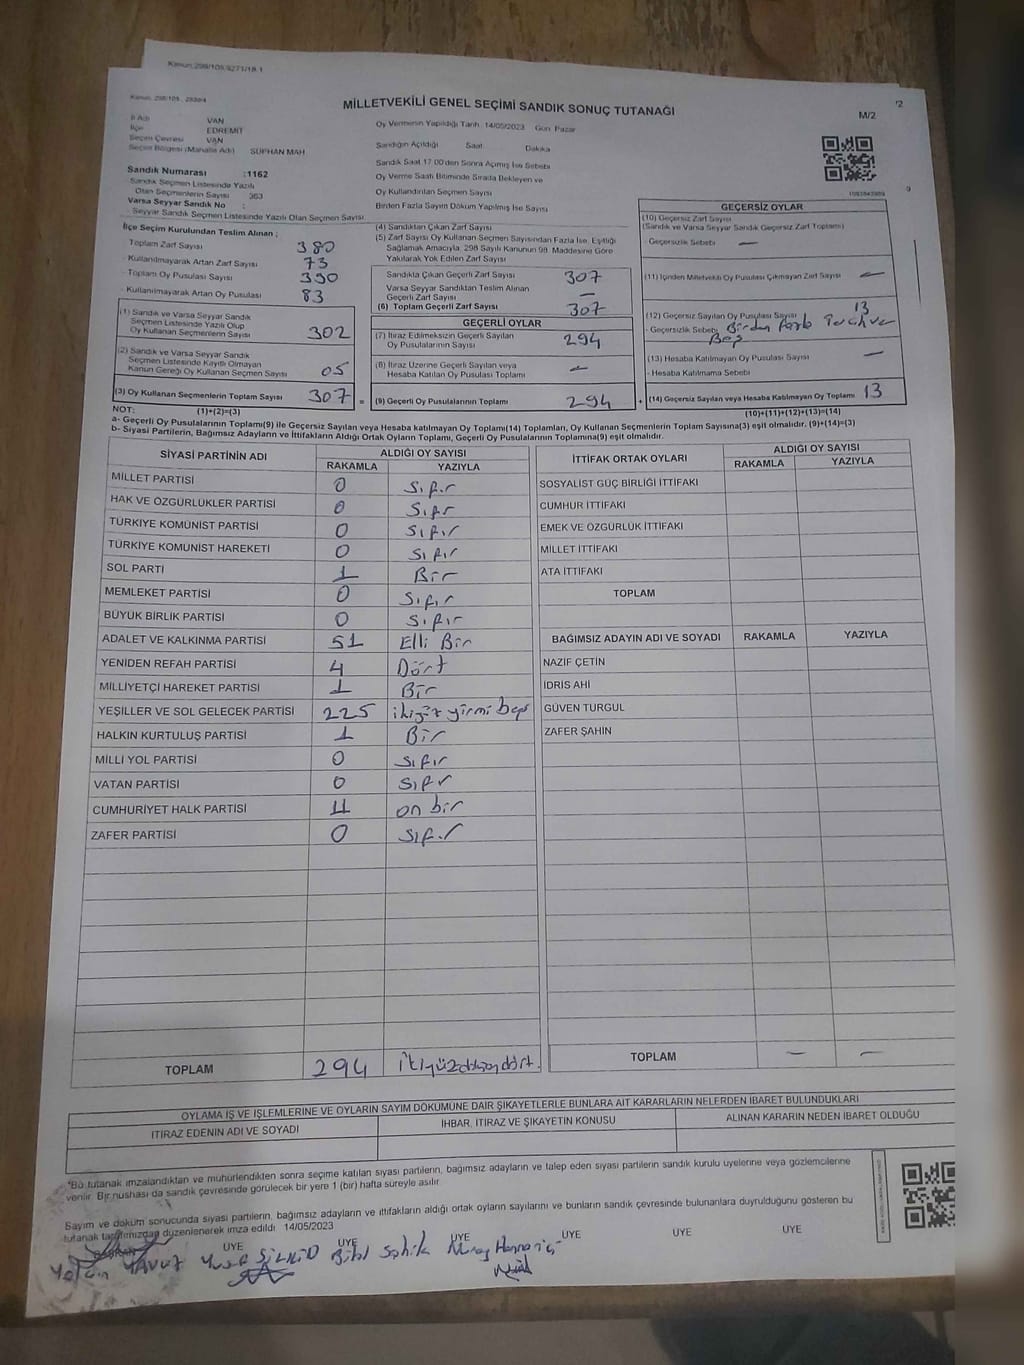 Kanun: 298/105,6271/18.1
Kanun: 298/105 , 2839/4
MİLLETVEKİLİ GENEL SEÇİMİ SANDIK SONUÇ TUTANAĞI
M/2
İl Adı VAN
İlçe EDREMİT
Seçim Çevresi VAN
Seçim Bölgesi (Mahalle Adı) SÜPHAN MAH
Sandık Numarası :1162
Sandık Seçmen Listesinde Yazılı
Olan Seçmenlerin Sayısı 363
Varsa Seyyar Sandık No :
- Seyyar Sandık Seçmen Listesinde Yazılı Olan Seçmen Sayısı
Oy Vermenin Yapıldığı Tarih 14/05/2023 Gün Pazar
Sandığın Açıldığı Saat Dakika
Sandık Saat 17.00'den Sonra Açılmış İse Sebebi
Oy Verme Saati Bitiminde Sırada Bekleyen ve
Oy Kullandırılan Seçmen Sayısı
Birden Fazla Sayım Döküm Yapılmış İse Sayısı
İlçe Seçim Kurulundan Teslim Alınan ;
Toplam Zarf Sayısı 380
Kullanılmayarak Artan Zarf Sayısı 73
Toplam Oy Pusulası Sayısı 390
- Kullanılmayarak Artan Oy Pusulası 83
(1) Sandık ve Varsa Seyyar Sandık
Seçmen Listesinde Yazılı Olup
Oy Kullanan Seçmenlerin Sayısı 302
(2) Sandık ve Varsa Seyyar Sandık
Seçmen Listesinde Kayıtlı Olmayan
Kanun Gereği Oy Kullanan Seçmen Sayısı 05
(3) Oy Kullanan Seçmenlerin Toplam Sayısı 307 =
(4) Sandıktan Çıkan Zarf Sayısı
(5) Zarf Sayısı Oy Kullanan Seçmen Sayısından Fazla İse, Eşitliği
Sağlamak Amacıyla, 298 Sayılı Kanunun 98. Maddesine Göre
Yakılarak Yok Edilen Zarf Sayısı
Sandıkta Çıkan Geçerli Zarf Sayısı 307
Varsa Seyyar Sandıktan Teslim Alınan
Geçerli Zarf Sayısı —
(6) Toplam Geçerli Zarf Sayısı 307
GEÇERLİ OYLAR
(7) İtiraz Edilmeksizin Geçerli Sayılan
Oy Pusulalarının Sayısı 294
(8) İtiraz Üzerine Geçerli Sayılan veya
Hesaba Katılan Oy Pusulası Toplamı —
(9) Geçerli Oy Pusulalarının Toplamı 294 +
GEÇERSİZ OYLAR
(10) Geçersiz Zarf Sayısı
(Sandık ve Varsa Seyyar Sandık Geçersiz Zarf Toplamı)
- Geçersizlik Sebebi —
(11) İçinden Milletvekili Oy Pusulası Çıkmayan Zarf Sayısı —
(12) Geçersiz Sayılan Oy Pusulası Sayısı 13
- Geçersizlik Sebebi Birden Fazla
(13) Hesaba Katılmayan Oy Pusulası Sayısı —
- Hesaba Katılmama Sebebi
(14) Geçersiz Sayılan veya Hesaba Katılmayan Oy Toplamı 13
NOT: (1)+(2)=(3) (10)+(11)+(12)+(13)=(14)
a- Geçerli Oy Pusulalarının Toplamı(9) ile Geçersiz Sayılan veya Hesaba katılmayan Oy Toplamı(14) Toplamları, Oy Kullanan Seçmenlerin Toplam Sayısına(3) eşit olmalıdır. (9)+(14)=(3)
b- Siyasi Partilerin, Bağımsız Adayların ve İttifakların Aldığı Ortak Oyların Toplamı, Geçerli Oy Pusulalarının Toplamına(9) eşit olmalıdır.
SİYASİ PARTİNİN ADI ALDIĞI OY SAYISI
RAKAMLA YAZIYLA
MİLLET PARTİSİ 0 Sıfır
HAK VE ÖZGÜRLÜKLER PARTİSİ 0 Sıfır
TÜRKİYE KOMÜNİST PARTİSİ 0 Sıfır
TÜRKİYE KOMÜNİST HAREKETİ 0 Sıfır
SOL PARTİ 1 Bir
MEMLEKET PARTİSİ 0 Sıfır
BÜYÜK BİRLİK PARTİSİ 0 Sıfır
ADALET VE KALKINMA PARTİSİ 51 Elli Bir
YENİDEN REFAH PARTİSİ 4 Dört
MİLLİYETÇİ HAREKET PARTİSİ 1 Bir
YEŞİLLER VE SOL GELECEK PARTİSİ 225 ikiyüz yirmi beş
HALKIN KURTULUŞ PARTİSİ 1 Bir
MİLLİ YOL PARTİSİ 0 Sıfır
VATAN PARTİSİ 0 Sıfır
CUMHURİYET HALK PARTİSİ 11 on bir
ZAFER PARTİSİ 0 Sıfır
TOPLAM 294 ikiyüzdoksandört.
İTTİFAK ORTAK OYLARI ALDIĞI OY SAYISI
RAKAMLA YAZIYLA
SOSYALİST GÜÇ BİRLİĞİ İTTİFAKI
CUMHUR İTTİFAKI
EMEK VE ÖZGÜRLÜK İTTİFAKI
MİLLET İTTİFAKI
ATA İTTİFAKI
TOPLAM
BAĞIMSIZ ADAYIN ADI VE SOYADI RAKAMLA YAZIYLA
NAZİF ÇETİN
İDRİS AHİ
GÜVEN TURGUL
ZAFER ŞAHİN
TOPLAM — —
OYLAMA İŞ VE İŞLEMLERİNE VE OYLARIN SAYIM DÖKÜMÜNE DAİR ŞİKAYETLERLE BUNLARA AİT KARARLARIN NELERDEN İBARET BULUNDUKLARI
İTİRAZ EDENİN ADI VE SOYADI İHBAR, İTİRAZ VE ŞİKAYETİN KONUSU ALINAN KARARIN NEDEN İBARET OLDUĞU
*Bu tutanak imzalandıktan ve mühürlendikten sonra seçime katılan siyasi partilerin, bağımsız adayların ve talep eden siyasi partilerin sandık kurulu üyelerine veya gözlemcilerine
verilir. Bir nüshası da sandık çevresinde görülecek bir yere 1 (bir) hafta süreyle asılır.
Sayım ve döküm sonucunda siyasi partilerin, bağımsız adayların ve ittifakların aldığı ortak oyların sayılarını ve bunların sandık çevresinde bulunanlara duyrulduğunu gösteren bu
tutanak tarafımızdan düzenlenerek imza edildi. 14/05/2023
BAŞKAN ÜYE ÜYE ÜYE ÜYE ÜYE ÜYE
Yalçın YAVUZ